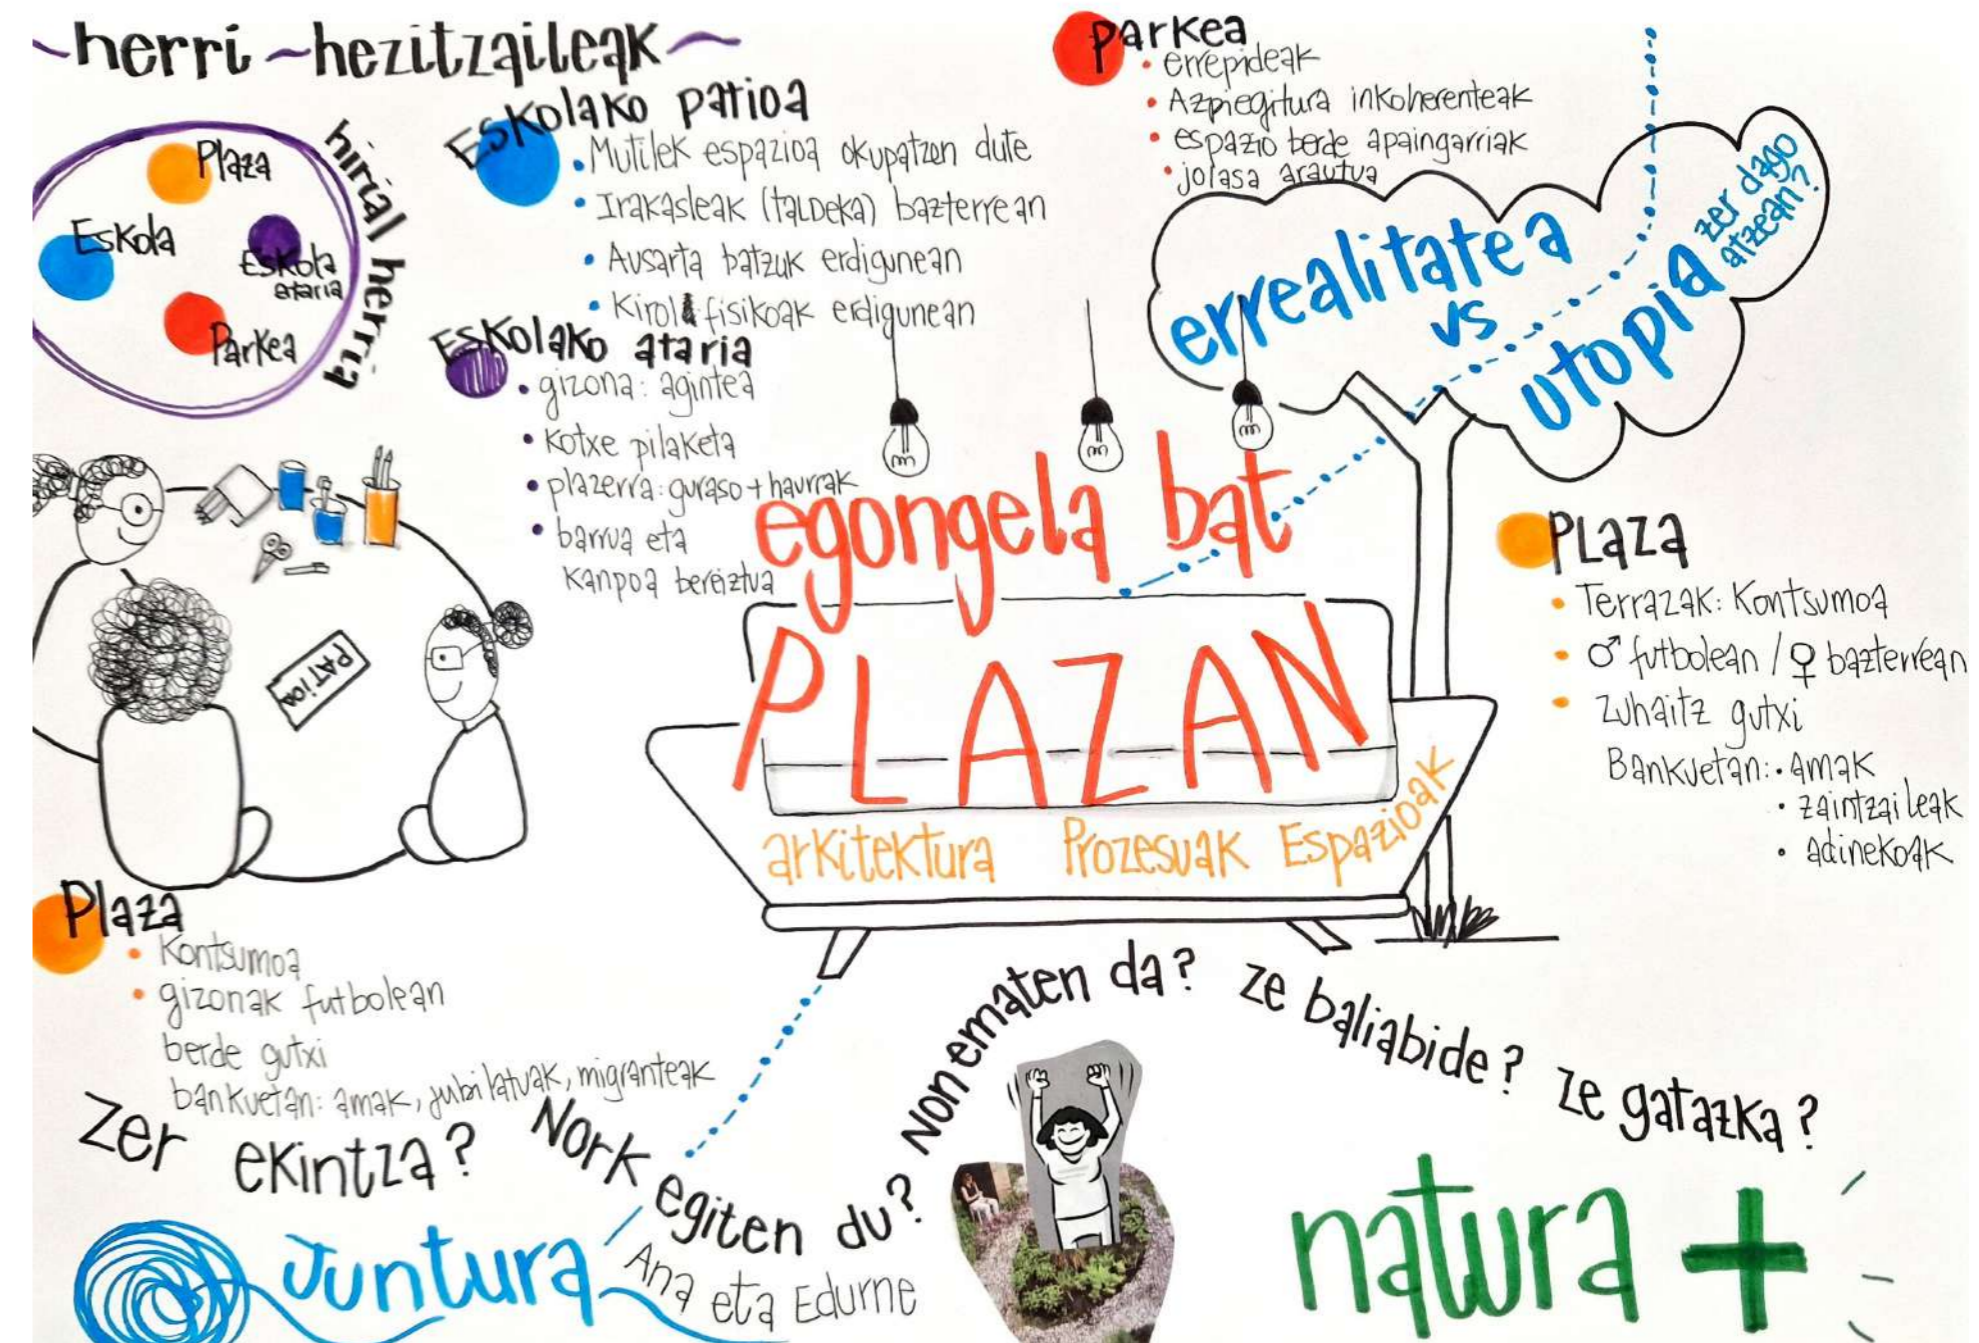 ~herri~hezitzaileak~
Plaza
Eskola
Eskola
ataria
Parkea
hiria/herria
Eskolako patioa
• Mutilek espazioa okupatzen dute
• Irakasleak (taldeka) bazterrean
• Ausarta batzuk erdigunean
• Kirol fisikoak erdigunean
Eskolako ataria
• gizona: agintea
• kotxe pilaketa
• plazerra: guraso + haurrak
• barrua eta
kanpoa bereiztua
Parkea
• errepideak
• Azpiegitura inkoherenteak
• espazio berde apaingarriak
• jolasa arautua
errealitatea
vs
utopia
zer dago
atzean?
egongela bat
PLAZAN
arkitektura Prozesuak Espazioak
PATIOA
PLaza
• Terrazak: Kontsumoa
• ♂ futbolean / ♀ bazterrean
• Zuhaitz gutxi
Bankuetan: • amak
• zaintzaileak
• adinekoak
Plaza
• Kontsumoa
• gizonak futbolean
berde gutxi
bankuetan: amak, jubilatuak, migranteak
Zer ekintza? Nork egiten du? Non ematen da? Ze baliabide? Ze gatazka?
Juntura
Ana eta Edurne
natura +